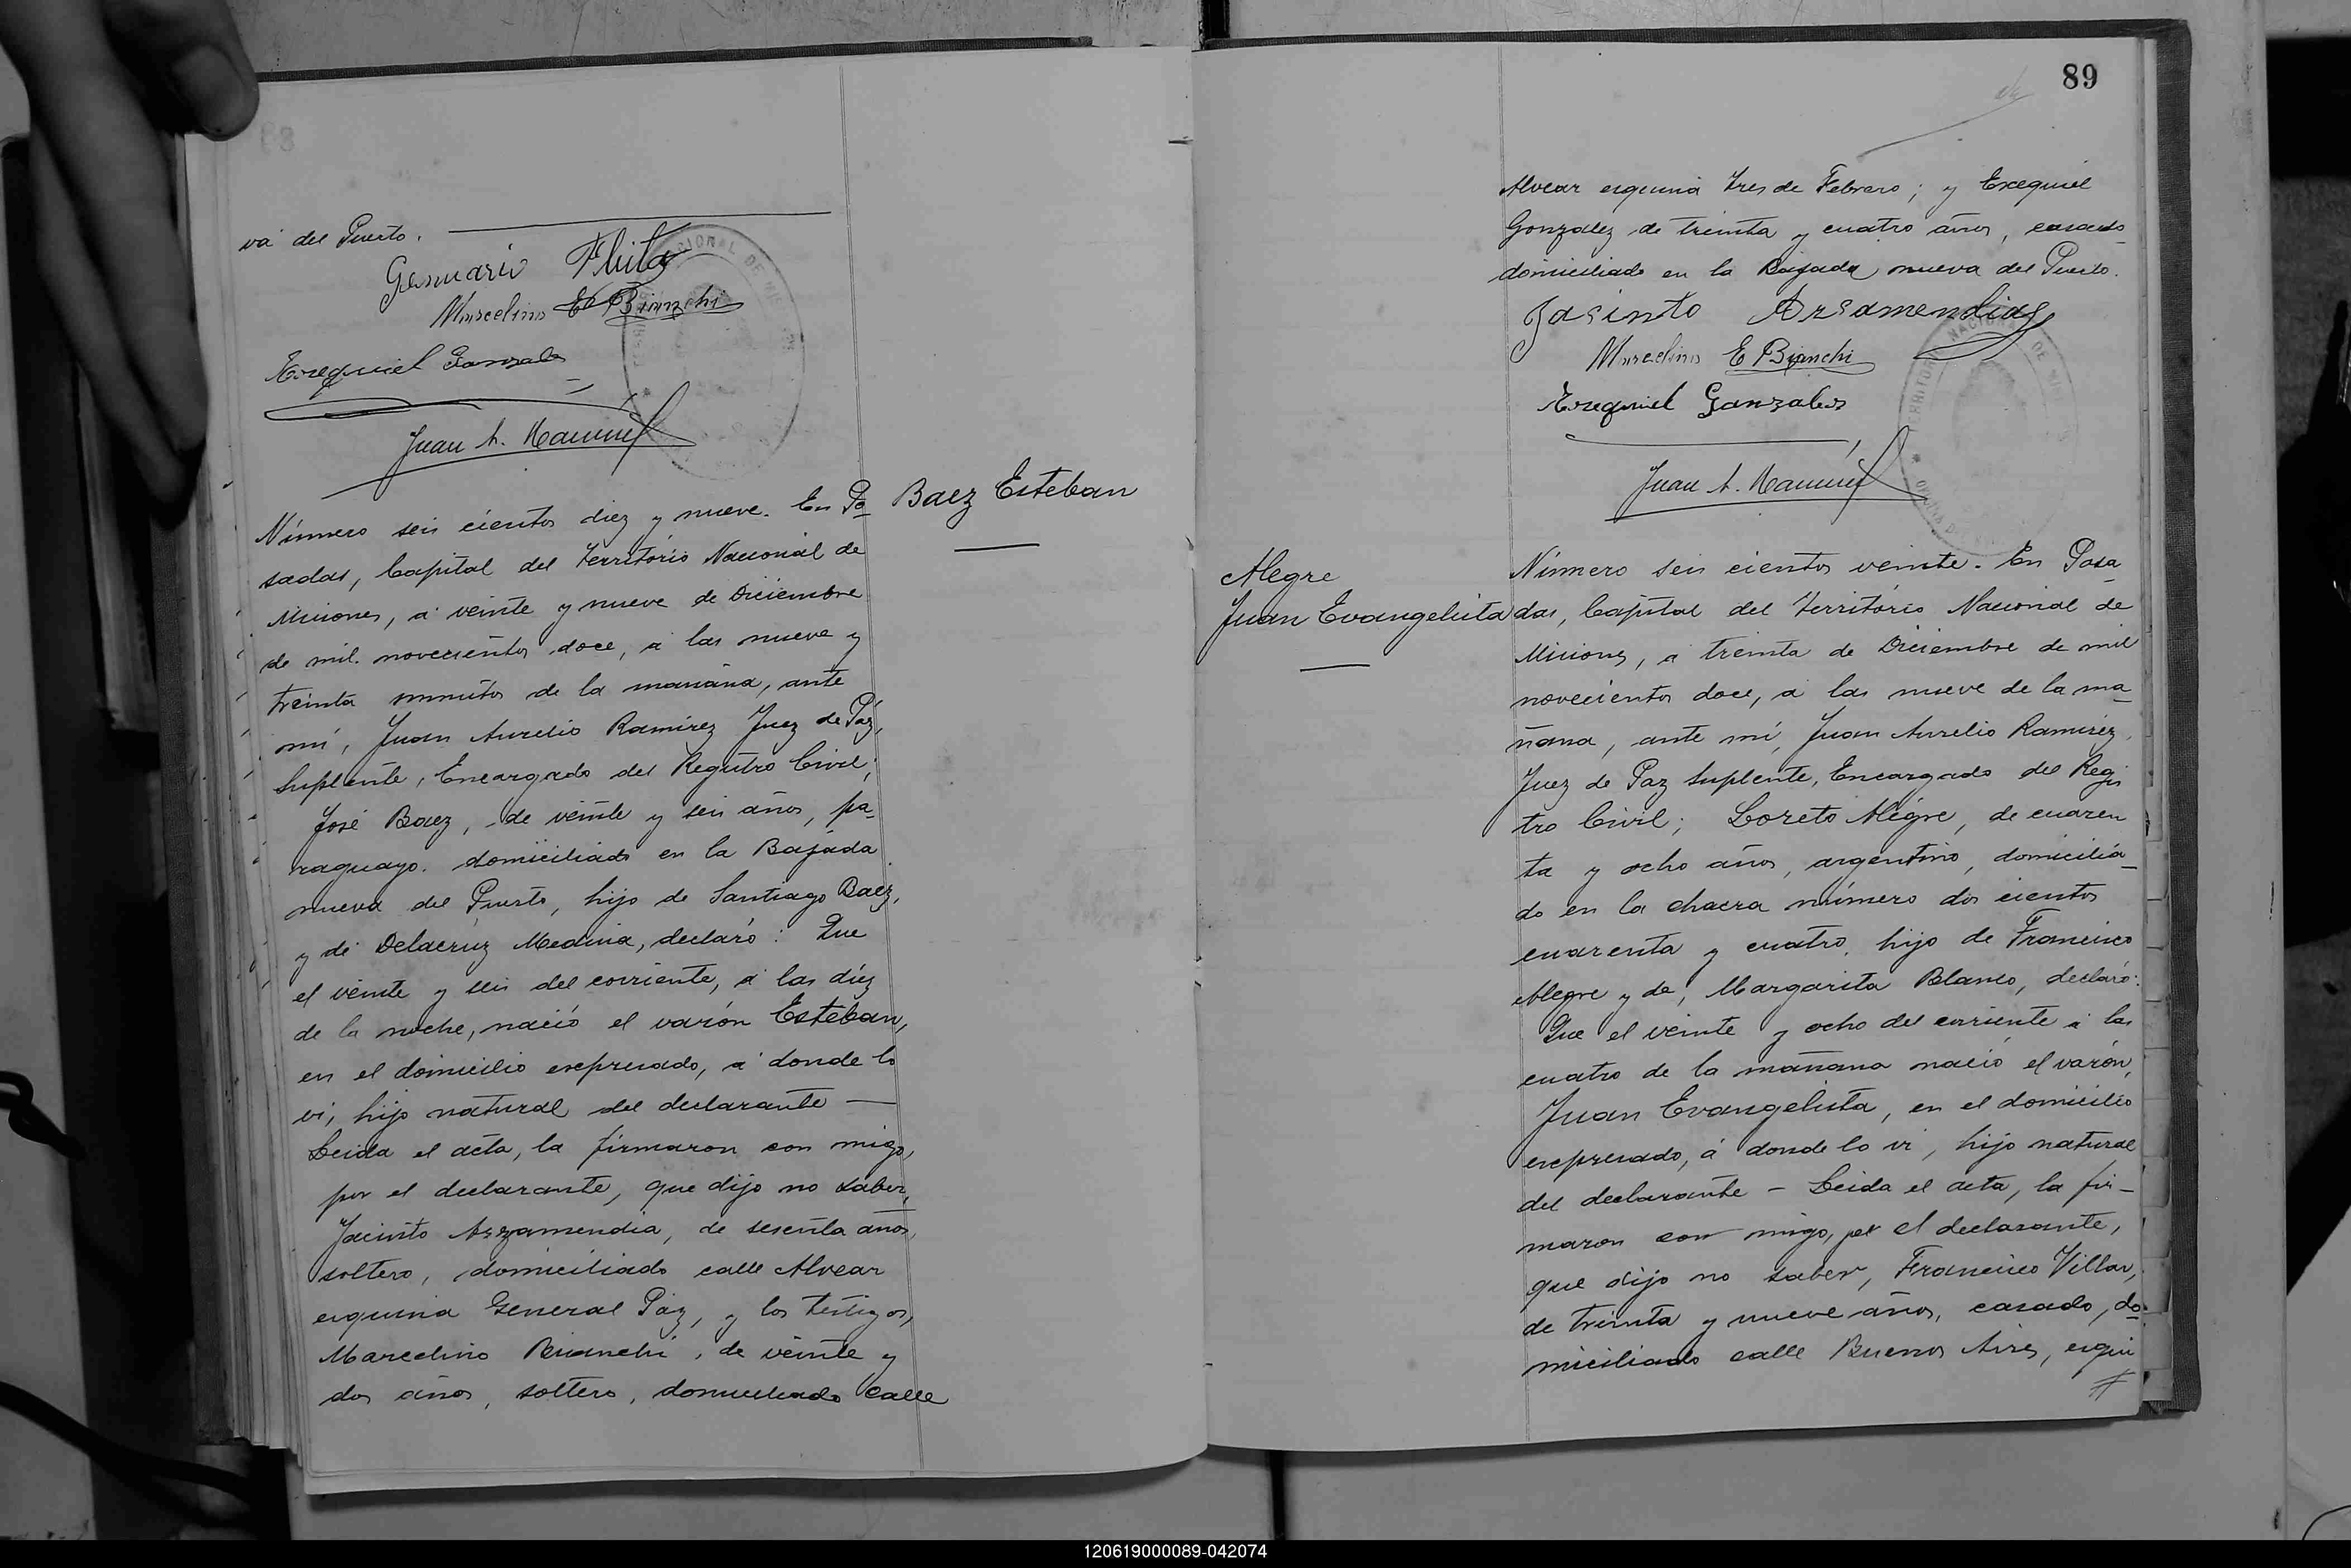 va del Puerto.
Genuario
Marcelino E Bianchi
Exequiel Gonzales
Juan A. Ramírez
Baez Esteban
Número seis cientos diez y nueve. En Po
sadas, Capital del Territorio Nacional de
Misiones, á veinte y nueve de Diciembre
de mil novecientos doce, á las nueve y
treinta minutos de la mañana, ante
mí, Juan Aurelio Ramírez Juez de Páz,
Suplente, Encargado del Registro Civil;
José Baez, de veinte y seis años, pa-
raguayo, domiciliado en la Bajada
nueva del Puerto, hijo de Santiago Baez,
y de Delacruz Medina, declaró: Que
el veinte y seis del corriente, á las diez
de la noche, nació el varón Esteban,
en el domicilio expresado, á donde lo
vi, hijo natural del declarante —
Leida el acta, la firmaron con migo,
por el declarante, que dijo no saber,
Jacinto Arzamendia, de sesenta años,
soltero, domiciliado calle Alvear
esquina General Páz, y los testigos,
Marcelino Bianchi, de veinte y
dos años, soltero, domiciliado calle
89
Alvear esquina Tres de Febrero; y Exequiel
Gonzalez de treinta y cuatro años, casado
domiciliado en la Bajada nueva del Puerto.
Jasinto Arsamendia
Marcelino E Bianchi
Exequiel Gonzales
Juan A. Ramírez
Alegre
Juan Evangelista
Número seis cientos veinte. En Posa-
das, Capital del Territorio Nacional de
Misiones, á treinta de Diciembre de mil
novecientos doce, á las nueve de la ma-
ñana, ante mí, Juan Aurelio Ramírez,
Juez de Paz Suplente, Encargado del Regis
tro Civil; Loreto Alegre, de cuaren
ta y ocho años, argentino, domicilia-
do en la chacra número dos cientos
cuarenta y cuatro, hijo de Francisco
Alegre y de, Margarita Blanco, declaró:
Que el veinte y ocho del corriente á las
cuatro de la mañana nació el varón,
Juan Evangelista, en el domicilio
expresado, á donde lo vi, hijo natural
del declarante – Leida el acta, la fir-
maron con migo, por el declarante,
que dijo no saber, Francisco Villar,
de treinta y nueve años, casado, do-
miciliado calle Buenos Aires, esqui
120619000089-042074